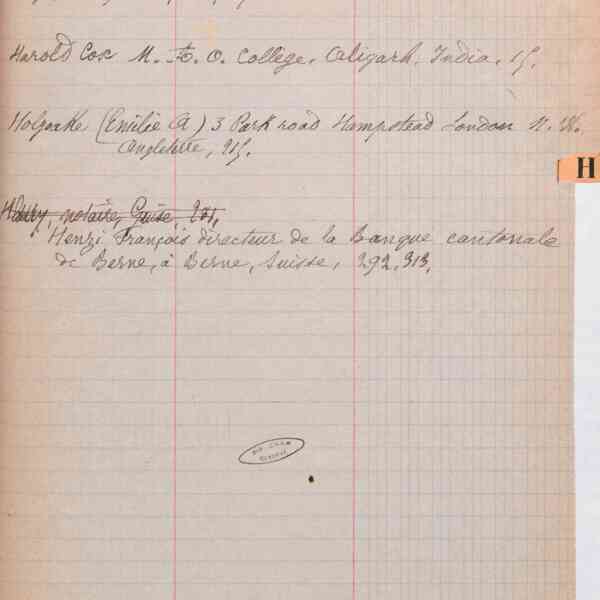 Harold Cox M. A. O. College, Aligarh, India, 15.
Holyoake (Emilie A) 3 Park road Hampstead London N. W.
Angleterre, 215.
H
notaire, Guise,
Henzi François directeur de la Banque cantonale
de Berne, à Berne, Suisse, 292, 313.